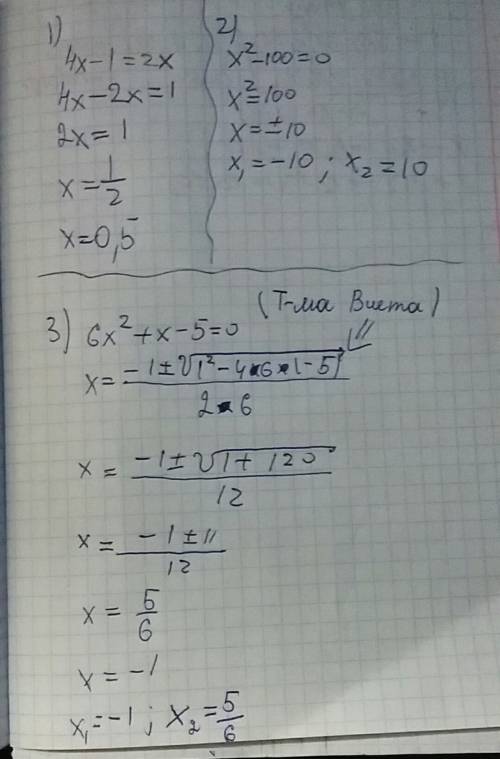 1)
4x-1=2x
4x-2x=1
2x=1
x=1/2
x=0,5
2)
x²-100=0
x²=100
x=±10
x₁=-10; x₂=10
(Т-ма Виета)
3) 6x²+x-5=0
x=(-1±√(1²-4*6*(-5)))/(2*6)
x=(-1±√(1+120))/12
x=(-1±11)/12
x=5/6
x=-1
x₁=-1; x₂=5/6